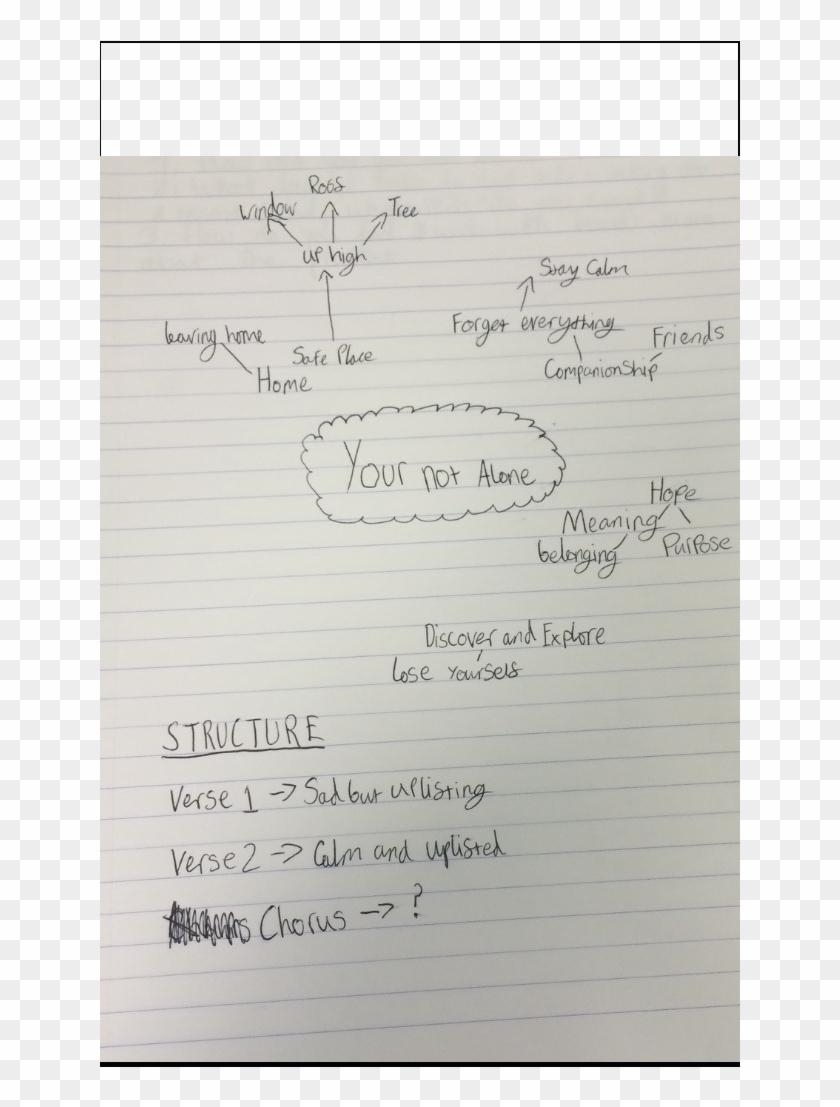 Roof
window
Tree
up high
Stay Calm
Forget everything
leaving home
Friends
Safe Place
Companionship
Home
Your not Alone
Hope
Meaning
Purpose
belonging
Discover and Explore
lose yourself
STRUCTURE
Verse 1 -> Sad but uplifting
Verse 2 -> Calm and uplifted
Chorus -> ?